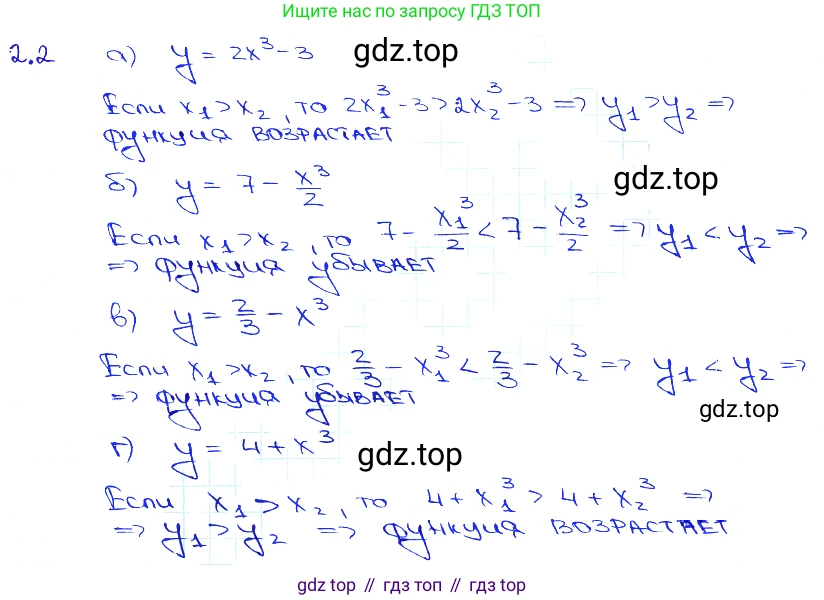 Ищите нас по запросу ГДЗ ТОП
2.2 а) y = 2x³ - 3 gdz.top
Если x₁ > x₂, то 2x₁³ - 3 > 2x₂³ - 3 => y₁ > y₂ =>
функция возрастает
б) y = 7 - x³/2 gdz.top
Если x₁ > x₂, то 7 - x₁³/2 < 7 - x₂³/2 => y₁ < y₂ =>
=> функция убывает
в) y = 2/3 - x³
Если x₁ > x₂, то 2/3 - x₁³ < 2/3 - x₂³ => y₁ < y₂ =>
=> функция убывает
gdz.top
г) y = 4 + x³ gdz.top
Если x₁ > x₂, то 4 + x₁³ > 4 + x₂³ =>
=> y₁ > y₂ => функция возрастает
gdz top // гдз топ // гдз top